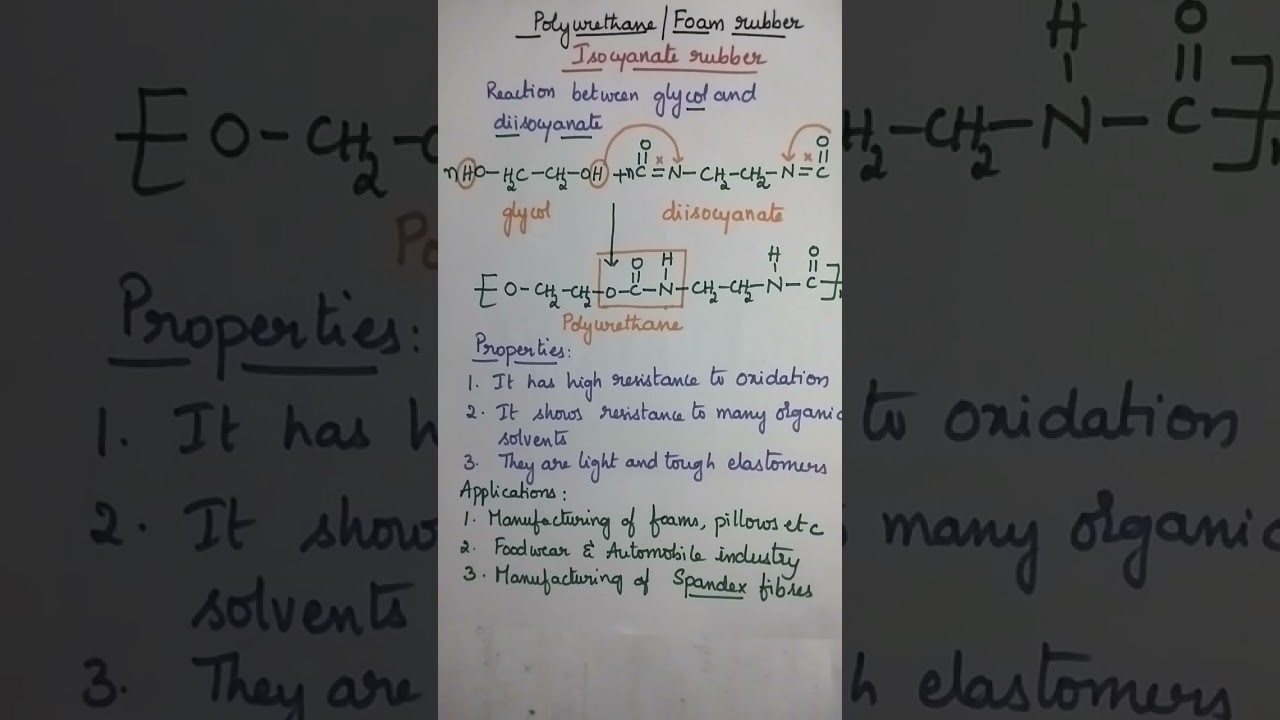 Polyurethane / Foam rubber
Isocyanate rubber
Reaction between glycol and
diisocyanate
nHO-H2C-CH2-OH + nC=N-CH2-CH2-N=C
O O
glycol diisocyanate
O H H O
[O-CH2-CH2-O-C-N-CH2-CH2-N-C]n
Polyurethane
Properties:
1. It has high resistance to oxidation
2. It shows resistance to many organic
solvents
3. They are light and tough elastomers
Applications:
1. Manufacturing of foams, pillows etc
2. Foodwear & Automobile industry
3. Manufacturing of Spandex fibres